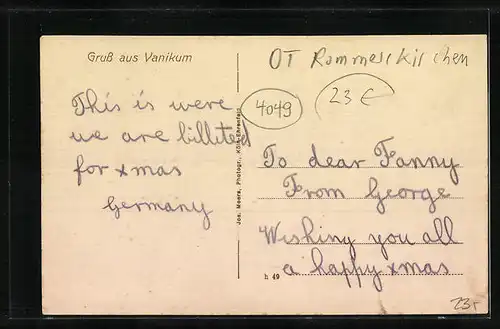 Gruß aus Vanikum
OT Rommerskirchen
4049
23 €
This is were
we are billited
for xmas
Germany
Jos. Meers, Photogr., Köln-Ehrenfeld
To dear Fanny
From George
Wishing you all
a happy xmas
h 49